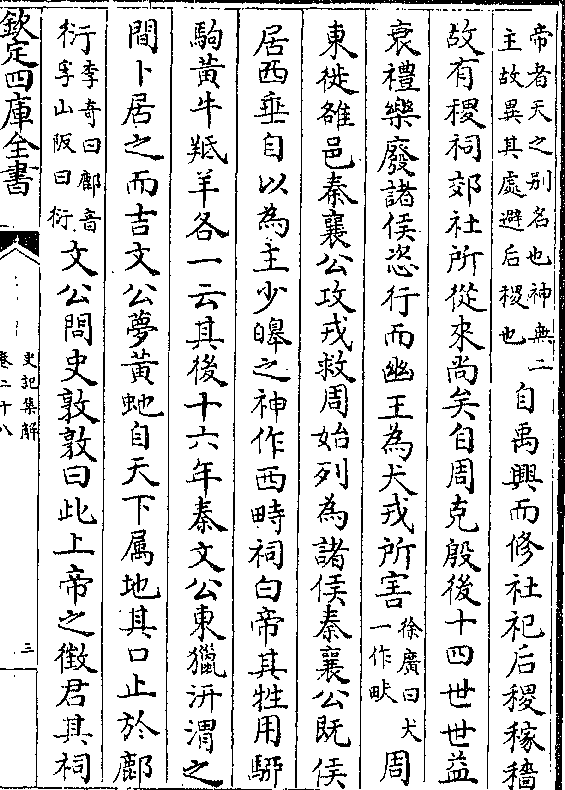 帝者天之别名也神無二
主故異其處避后稷也
自禹興而修社祀后稷稼穡
故有稷祠郊社所從來尚矣自周克殷後十四世世益
衰禮樂廢諸侯恣行而幽王為犬戎所害
徐廣曰犬
一作畎
周
東徙雒邑秦襄公攻戎救周始列為諸侯秦襄公既侯
居西垂自以為主少皥之神作西畤祠白帝其牲用騂
駒黄牛羝羊各一云其後十六年秦文公東獵汧渭之
間卜居之而吉文公夢黄虵自天下属地其口止於鄜
衍
李奇曰鄜音
孚山阪曰衍
文公問史敦敦曰此上帝之徵君其祠
欽定四庫全書
史記集解
卷二十八
三